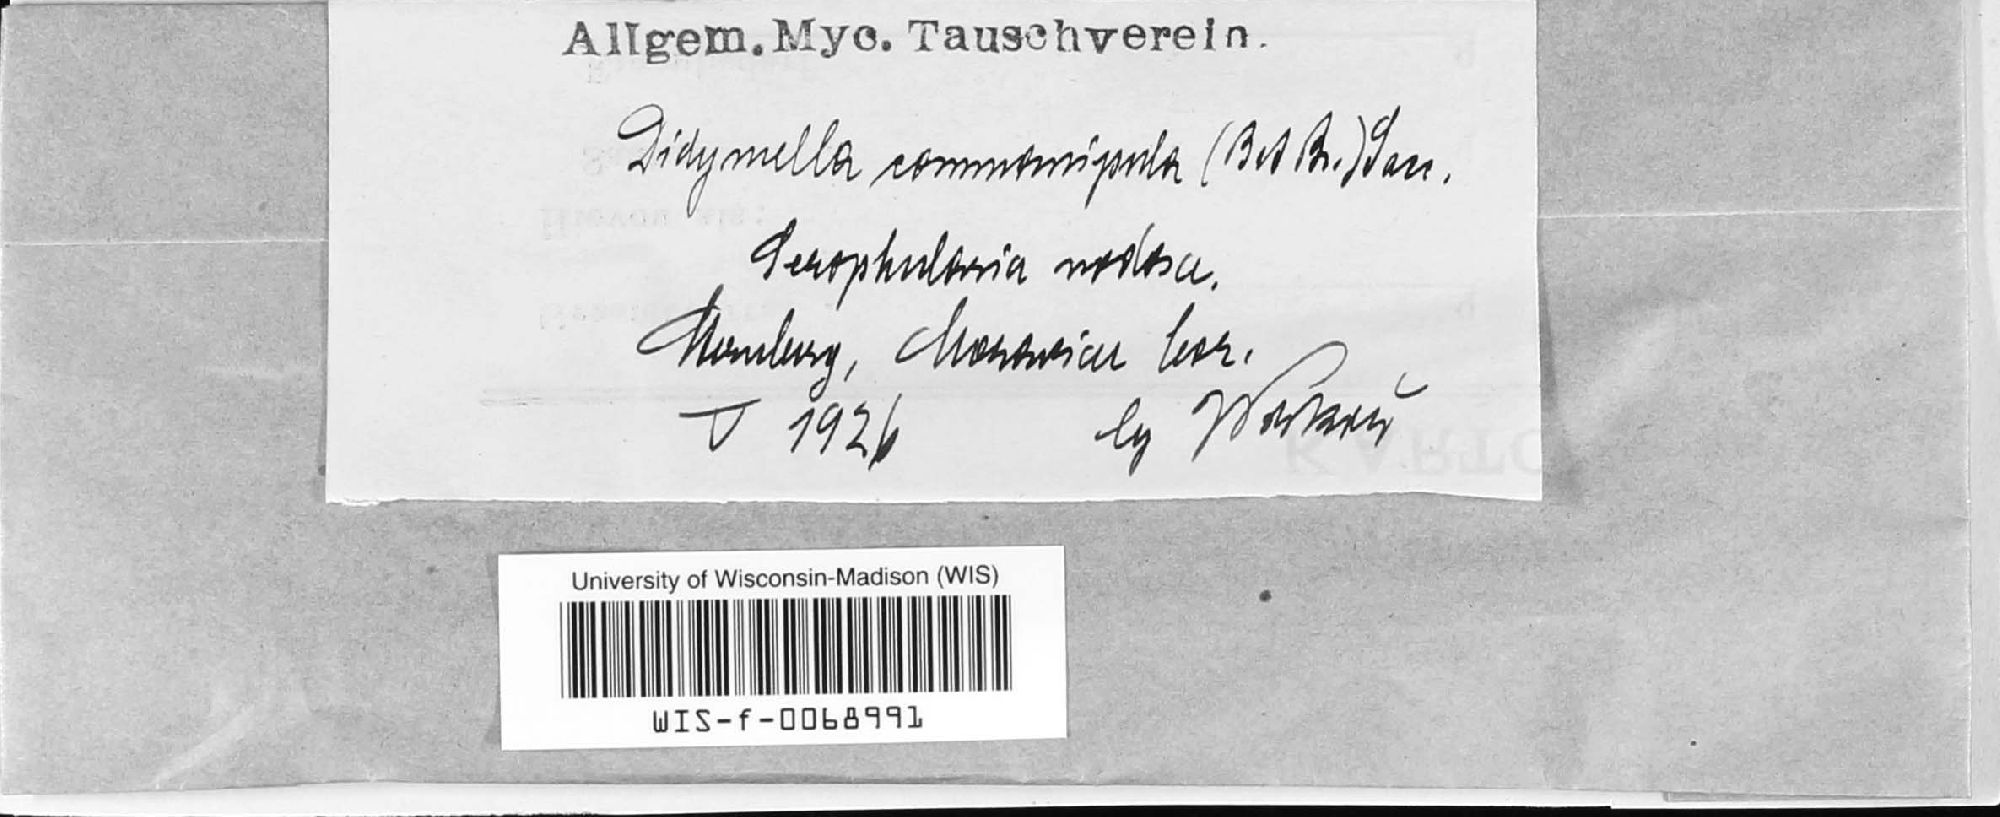 Allgem. Myc. Tauschverein.
Didymella commanipula (B et Br.) Sacc.
Scrophularia nodosa.
Moraviae bor.
V 1926 lg
University of Wisconsin-Madison (WIS)
WIS-f-0068991